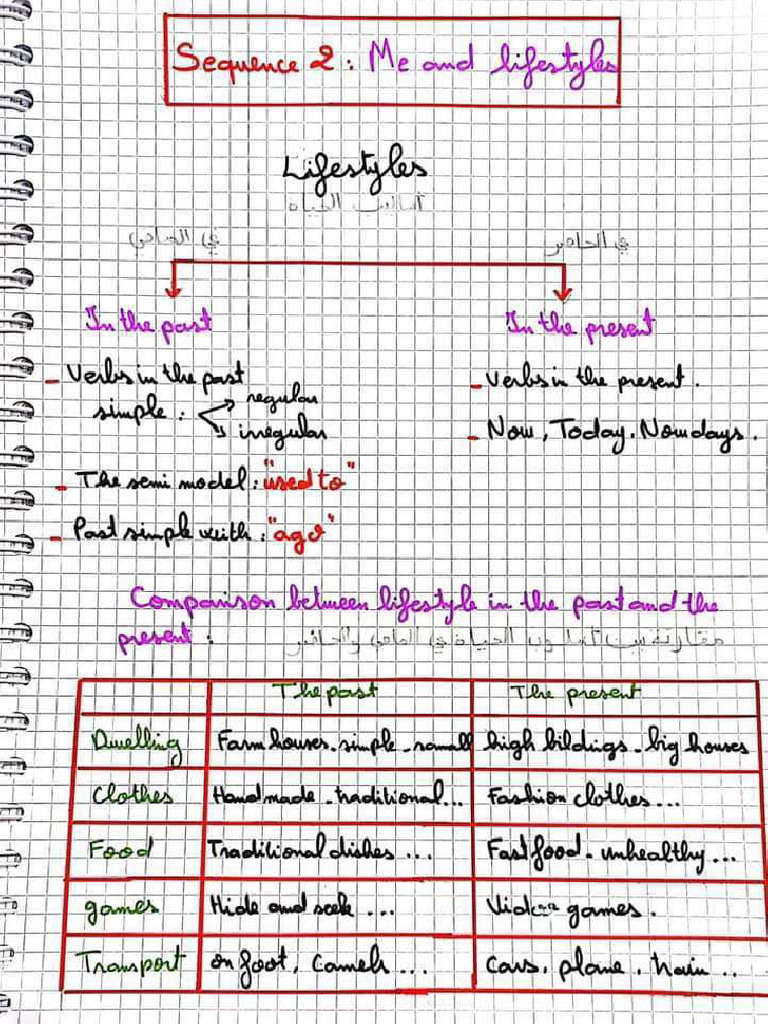 Sequence 2 : Me and lifestyles
Lifestyles
أساليب الحياه
في الماضي في الحاضر
In the past In the present
- Verbs in the past - Verbs in the present.
simple : regular
irregular
- Now, Today. Nowdays.
- The semi model : "used to"
- Past simple with : "ago"
Comparison between lifestyle in the past and the
present : مقارنة بين أسلوب الحياة في الماضي والحاضر
The past The present
Dwelling Farm houses. simple - small high bildings - big houses
Clothes Handmade - traditional... Fashion clothes...
Food Traditional dishes ... Fast food - unhealthy ...
games Hide and seek ... Video games.
Transport on foot, Camels ... Cars, plane, train ..